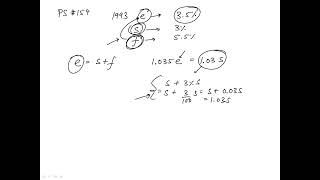 PS #159
1993 e 3.5%
s 3%
f 5.5%
e = s+f 1.035e = 1.03s
s + 3% s
= s + 3/100 s = s + 0.03s
= 1.03s